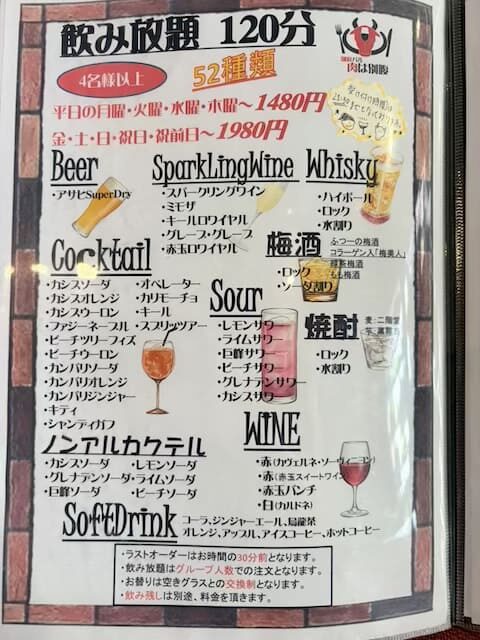 飲み放題 120分
肉は別腹
4名様以上
52種類
平日の月曜・火曜・水曜・木曜～1480円
金・土・日・祝日・祝前日～1980円
Beer
・アサヒSuperDry
SparkLingWine
・スパークリングワイン
・ミモザ
・キールロワイヤル
・グレープ・グレープ
・赤玉ロワイヤル
Whisky
・ハイボール
・ロック
・水割り
梅酒
ふつーの梅酒
コラーゲン入「梅美人」
緑茶梅酒
もも梅酒
・ロック
・ソーダ割り
Cocktail
・カシスソーダ
・カシスオレンジ
・カシスウーロン
・ファジーネーブル
・ピーチツリーフィズ
・ピーチウーロン
・カンパリソーダ
・カンパリオレンジ
・カンパリジンジャー
・キティ
・シャンディガフ
・オペレーター
・カリモーチョ
・キール
・スプリッツァー
Sour
・レモンサワー
・ライムサワー
・巨峰サワー
・ピーチサワー
・グレナデンサワー
・カシスサワー
焼酎
麦:二階堂
・ロック
・水割り
ノンアルカクテル
・カシスソーダ
・グレナデンソーダ
・巨峰ソーダ
・レモンソーダ
・ライムソーダ
・ピーチソーダ
WINE
・赤(カヴェルネ・ソーヴィニヨン)
・赤(赤玉スイートワイン)
・赤玉パンチ
・白(カルドネ)
SoftDrink
コーラ、ジンジャーエール、烏龍茶
オレンジ、アップル、アイスコーヒー、ホットコーヒー
・ラストオーダーはお時間の30分前となります。
・飲み放題はグループ人数での注文となります。
・お替りは空きグラスとの交換制となります。
・飲み残しは別途、料金を頂きます。